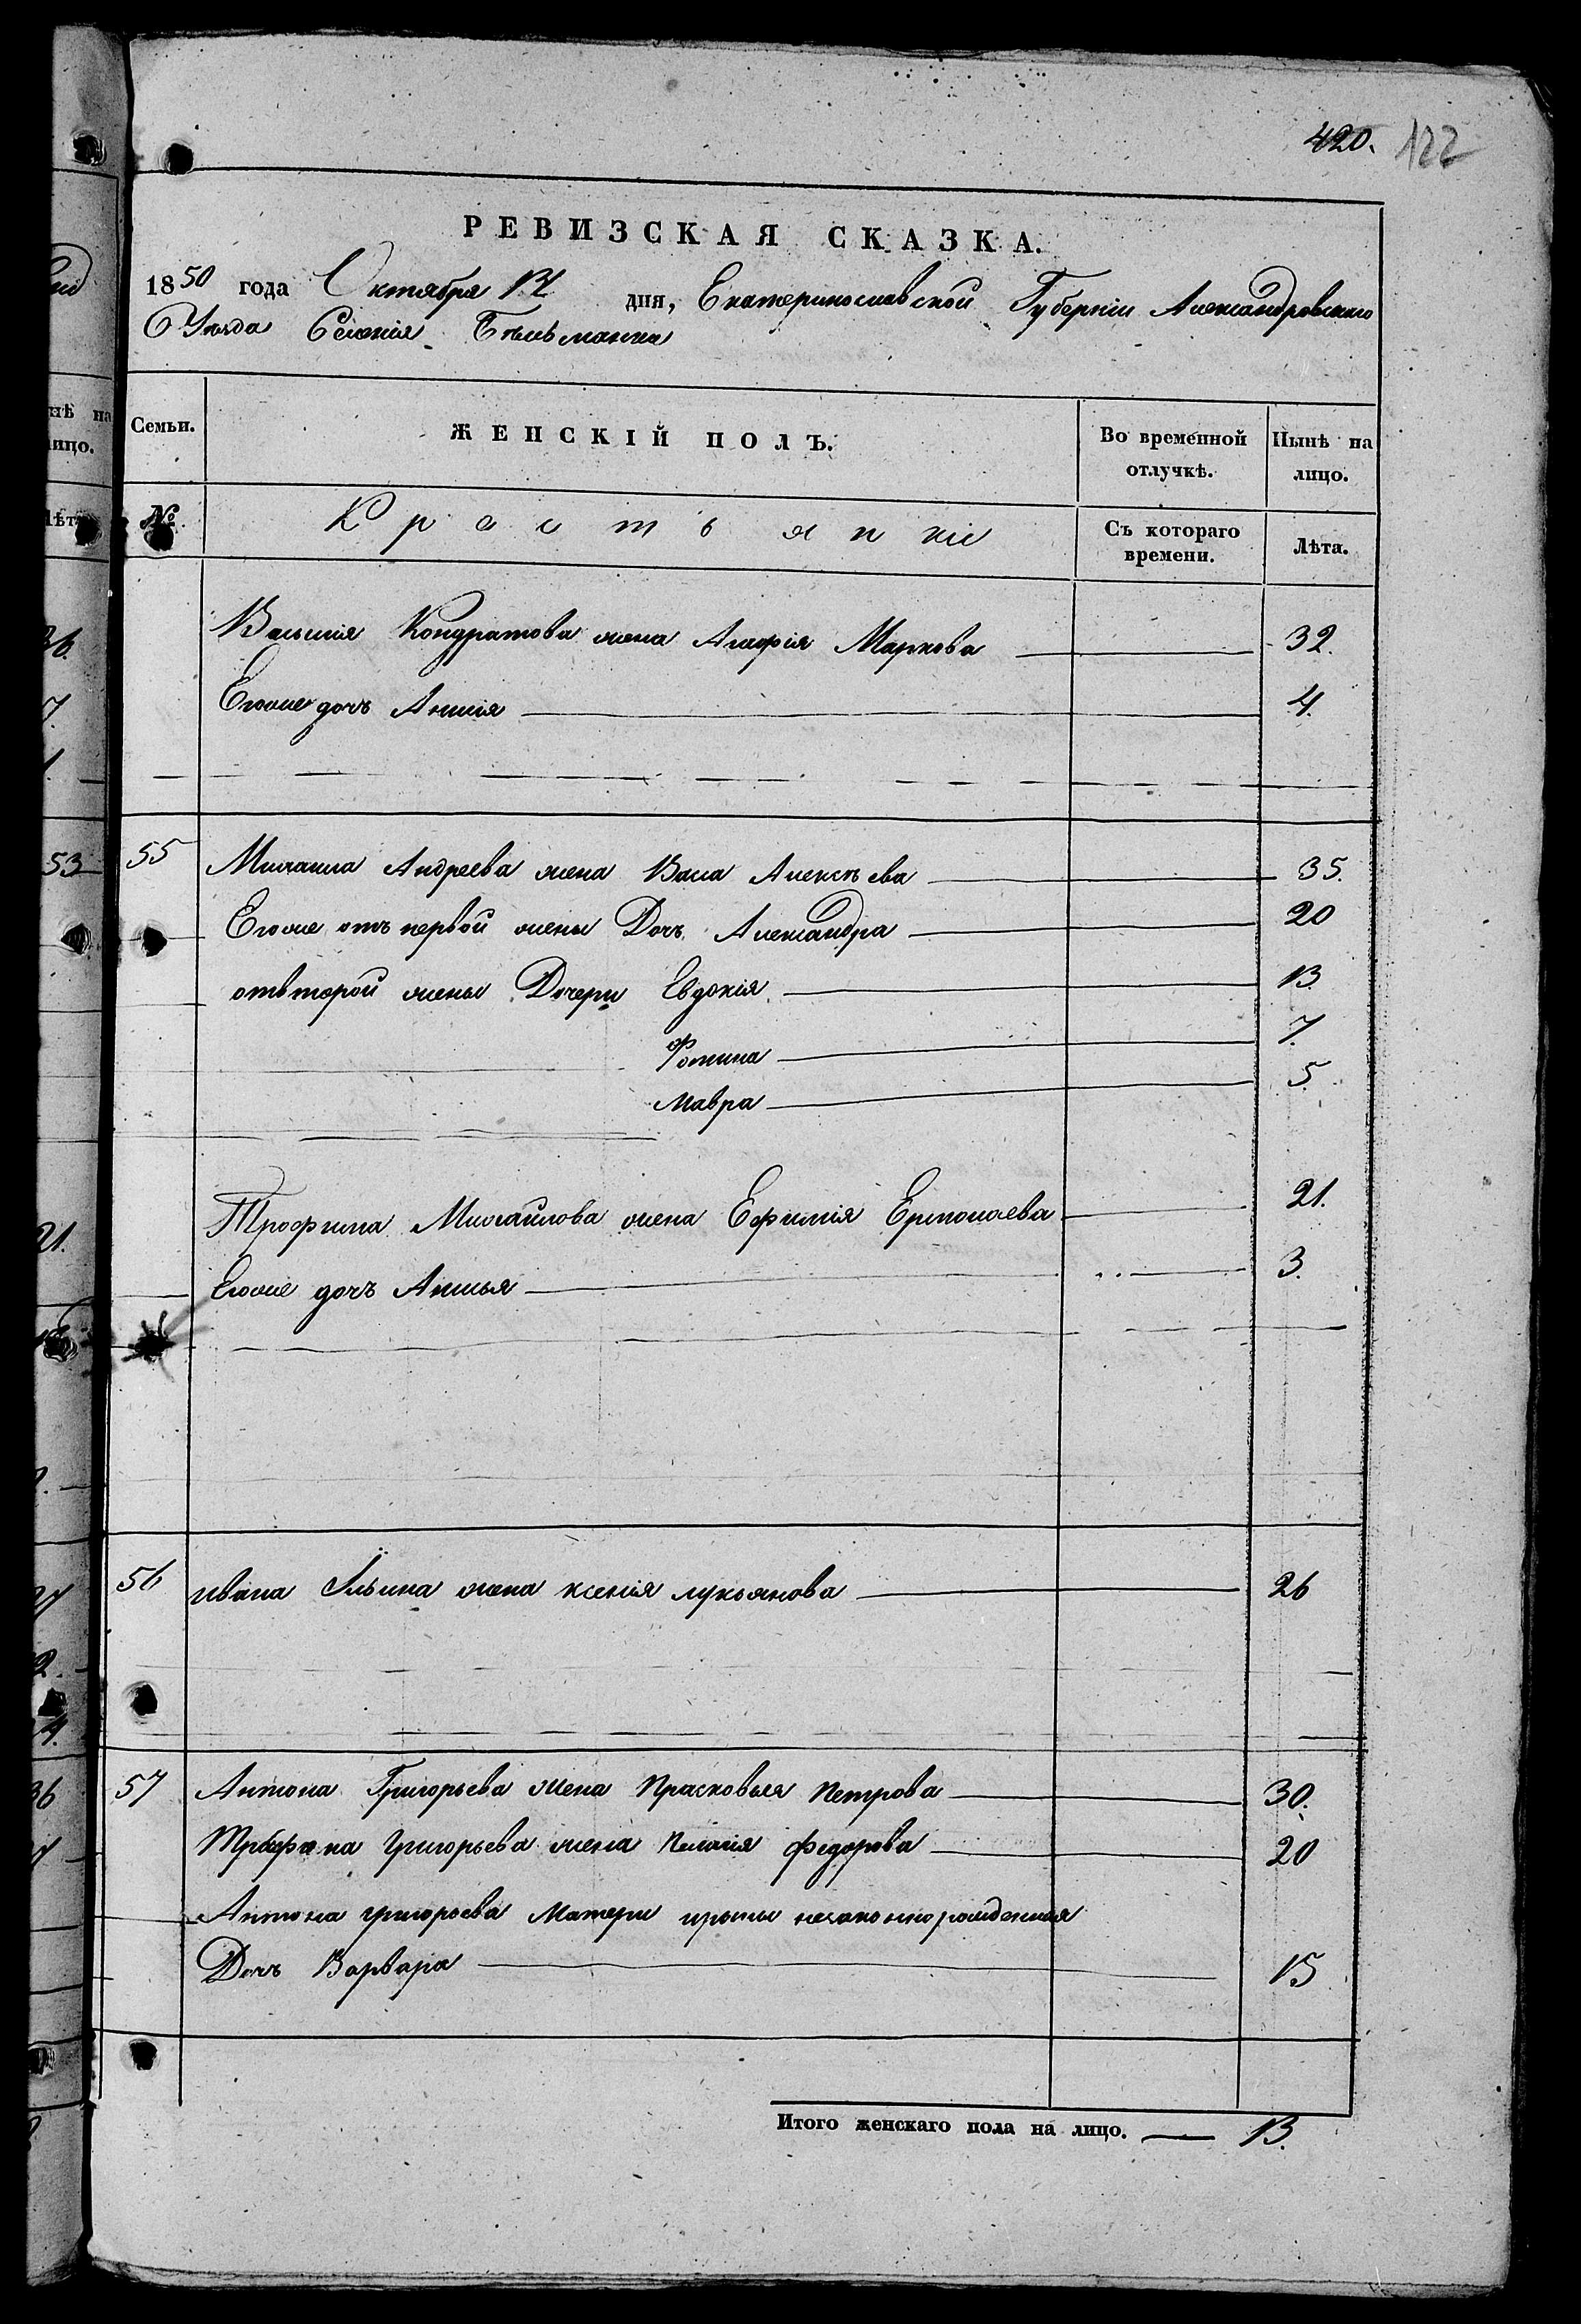 420. 122
РЕВИЗСКАЯ СКАЗКА.
1850 года Октября 14 дня, Екатеринославской Губерніи Александровскаго
Уѣзда Селенія Бѣльманка
нѣ на
лицо.
Семьи. ЖЕНСКІЙ ПОЛЪ. Во временной отлучкѣ. Нынѣ на лицо.
№ Крестьянки Съ котораго времени. Лѣта.
Василія Кондратова жена Агафія Маркова 32.
Егоже дочь Аннія 4.
53
55 Михаила Андреева жена Васа Алексѣева 35.
Егоже отъ первой жены Дочь Александра 20
отвторой жены Дочери Евдокія 13
Фотина 7.
Мавра 5.
21.
Трофима Михайлова жена Ефимія Ермолаева 21.
Егоже дочъ Анисья 3.
56 ивана Ильина жена ксенія лукьянова 26
57 Антона Григорьева жена Прасковья Петрова 30.
Трофима Григорьева жена Пелагія федорова 20
Антона григорьева Матери ирины незаконнорожденная
Дочъ Варвара 15
Итого женскаго пола на лицо. 13.